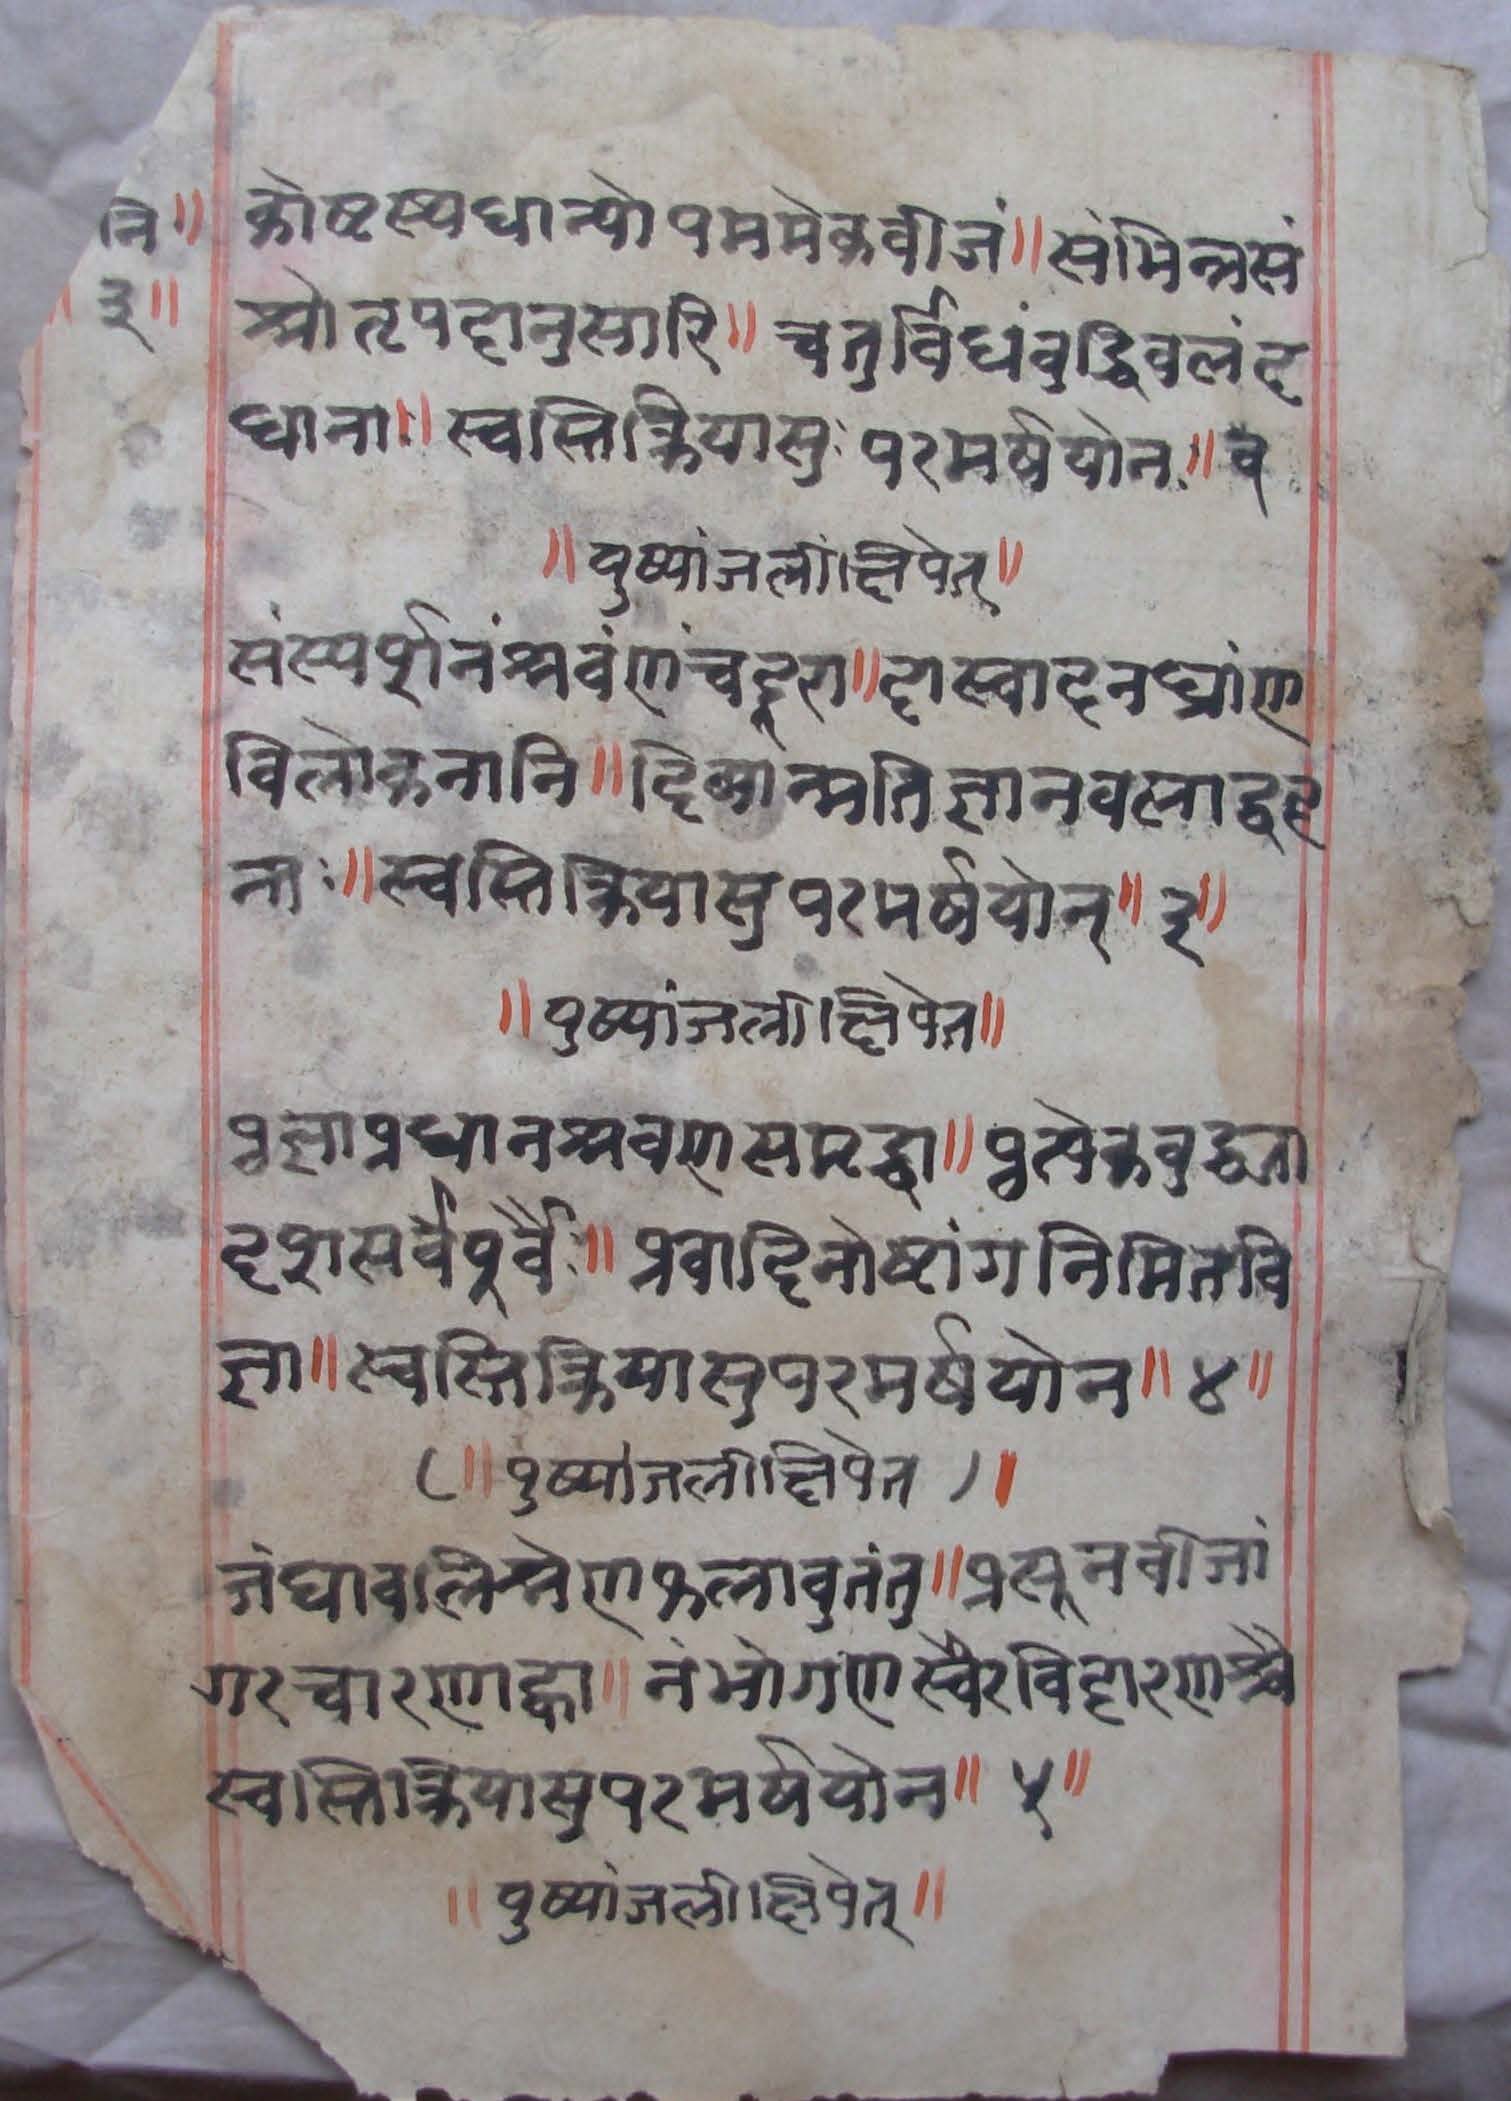 नि॥
३॥
कोष्टस्यधान्योपममेकवीजं॥संभिन्नसं
श्रोतृपदानुसारि॥ चतुर्विधंवुद्धिवलंद
धाना:॥ स्वस्तिक्रियासु: परमर्षयोन:॥ २
॥पुष्पांजलींक्षिपेत्॥
संस्पर्शनंश्रवंणंचदूरा॥दास्वादनघ्रांण
विलोकनानि॥दिव्यान्मतिज्ञानवलाद्वह
ना:॥स्वस्तिक्रियासुपरमर्षयोन्॥३॥
॥पुष्पांजलीक्षिपेत॥
प्रज्ञाप्रधानश्रवणसमृद्धा॥प्रत्येकवुद्धता
दृशसर्वपूर्वै:॥प्रवादिनोष्टांगनिमितवि
ज्ञा॥स्वस्तिक्रियासुपरमर्षयोन॥४॥
(॥पुष्पांजलीक्षिपेत )॥
जंघावलिश्रेणफलावुतंतु॥प्रसूनवीजां
गरचारणाह्वा॥नंभोगणस्वैरविहारणश्चै
स्वस्तिक्रियासुपरमर्षयोन॥ ५॥
॥पुष्पांजलीक्षिपेत्॥